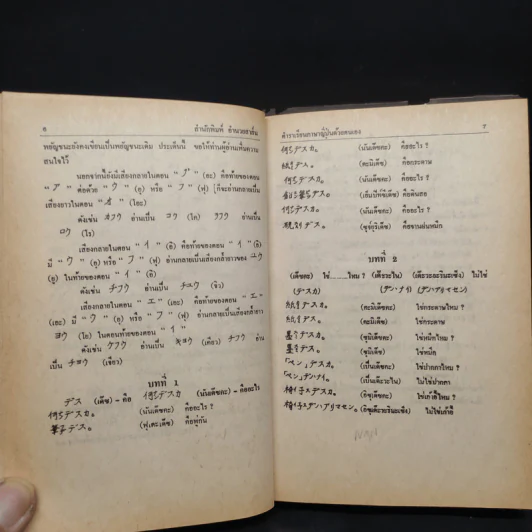 6 สำนักพิมพ์ อำนวยสาส์น
พยัญชนะยังคงเขียนเป็นพยัญชนะเดิม ประเดี๋ยนี้ ขอให้ท่านผู้อ่านเพิ่มความ
สนใจไว้
นอกจากนี้ยังมีเสียงภายในตอน "ア"
"ア" ต่อด้วย "ウ" (อุ) หรือ "フ" (ฟุ) ก็จะอ่านกลายเป็น
เสียงยาวในตอน "オ" (โอะ)
ดังเช่น カフウ อ่านเป็น コウ (โก) ラフウ อ่านเป็น
ロウ (โร)
เสียงกลายในตอน "イ" (อิ) คือท้ายของตอน "イ" (อิ)
มี "ウ" (อุ) หรือ "フ" (ฟุ) อ่านกลายเป็นเสียงก้ำยาวของ ユウ
ในท้ายของตอน "イ" (อิ)
ดังเช่น チフウ อ่านเป็น チユウ (จิว)
เสียงกลายในตอน "エ" (เอะ) คือท้ายของตอน "エ"
(เอะ) มี "ウ" (อุ) หรือ "フ" (ฟุ) อ่านกลายเป็นเสียงก้ำยาวของ
ヨウ (โย) ในตอนท้ายของตอน "イ"
ดังเช่น ケフウ อ่านเป็น キヨウ (เคียว) チフウ อ่าน
เป็น チヨウ (เชียว)
บทที่ 1
デス (เด๊ซ) - คือ 何デスカ (นันเด๊ซคะ) - คืออะไร
何デスカ。 (นันเด๊ซคะ) คืออะไร ?
筆デス。 (ฟุเดะเด๊ซ) คือพู่กัน
ตำราเรียนภาษาญี่ปุ่นด้วยตนเอง 7
何デスカ。 (นันเด๊ซคะ) คืออะไร ?
紙デス。 (คะมิเด๊ซ) คือกระดาษ
何デスカ。 (นันเด๊ซคะ) คืออะไร ?
鉛筆デス。 (เอ็มปิทซึเด๊ซ) คือดินสอ
何デスカ。 (นันเด๊ซคะ) คืออะไร ?
硯デス。 (ซุซุริเด๊ซ) คือจานฝนหมึก
บทที่ 2
(เด๊ซคะ) ใช่......ไหม ? (เด๊ะวะไน) (เด๊ะวะอะริมะเซ็ง) ไม่ใช่
(デスカ) (デハナイ) (デハアリマセン)
紙デスカ。 (คะมิเด๊ซคะ) ใช่กระดาษไหม ?
紙デス。 (คะมิเด๊ซ) ใช่กระดาษ
墨デスカ。 (ซุมิเด๊ซคะ) ใช่หมึกไหม ?
墨デス。 (ซุมิเด๊ซ) ใช่หมึก
「ペン」デスカ。 (เป็นเด๊ซคะ) ใช่ปากกาไหม ?
「ペン」デハナイ。 (เป็นเด๊ะวะไน) ไม่ใช่ปากกา
椅子デスカ。 (อิซุเด๊ซคะ) ใช่เก้าอี้ไหม ?
椅子デハアリマセン。 (อิซุเด๊ะวะอะริมะเซ็ง) ไม่ใช่เก้าอี้